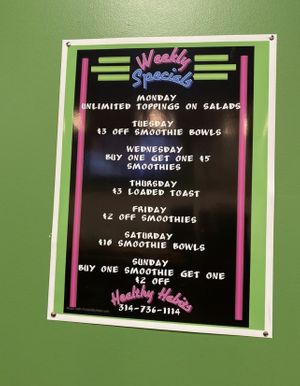 Weekly
Specials
MONDAY
UNLIMITED TOPPINGS ON SALADS
TUESDAY
$3 OFF SMOOTHIE BOWLS
WEDNESDAY
BUY ONE GET ONE $5
SMOOTHIES
THURSDAY
$3 LOADED TOAST
FRIDAY
$2 OFF SMOOTHIES
SATURDAY
$10 SMOOTHIE BOWLS
SUNDAY
BUY ONE SMOOTHIE GET ONE
$2 OFF
Healthy Habits
314-736-1114